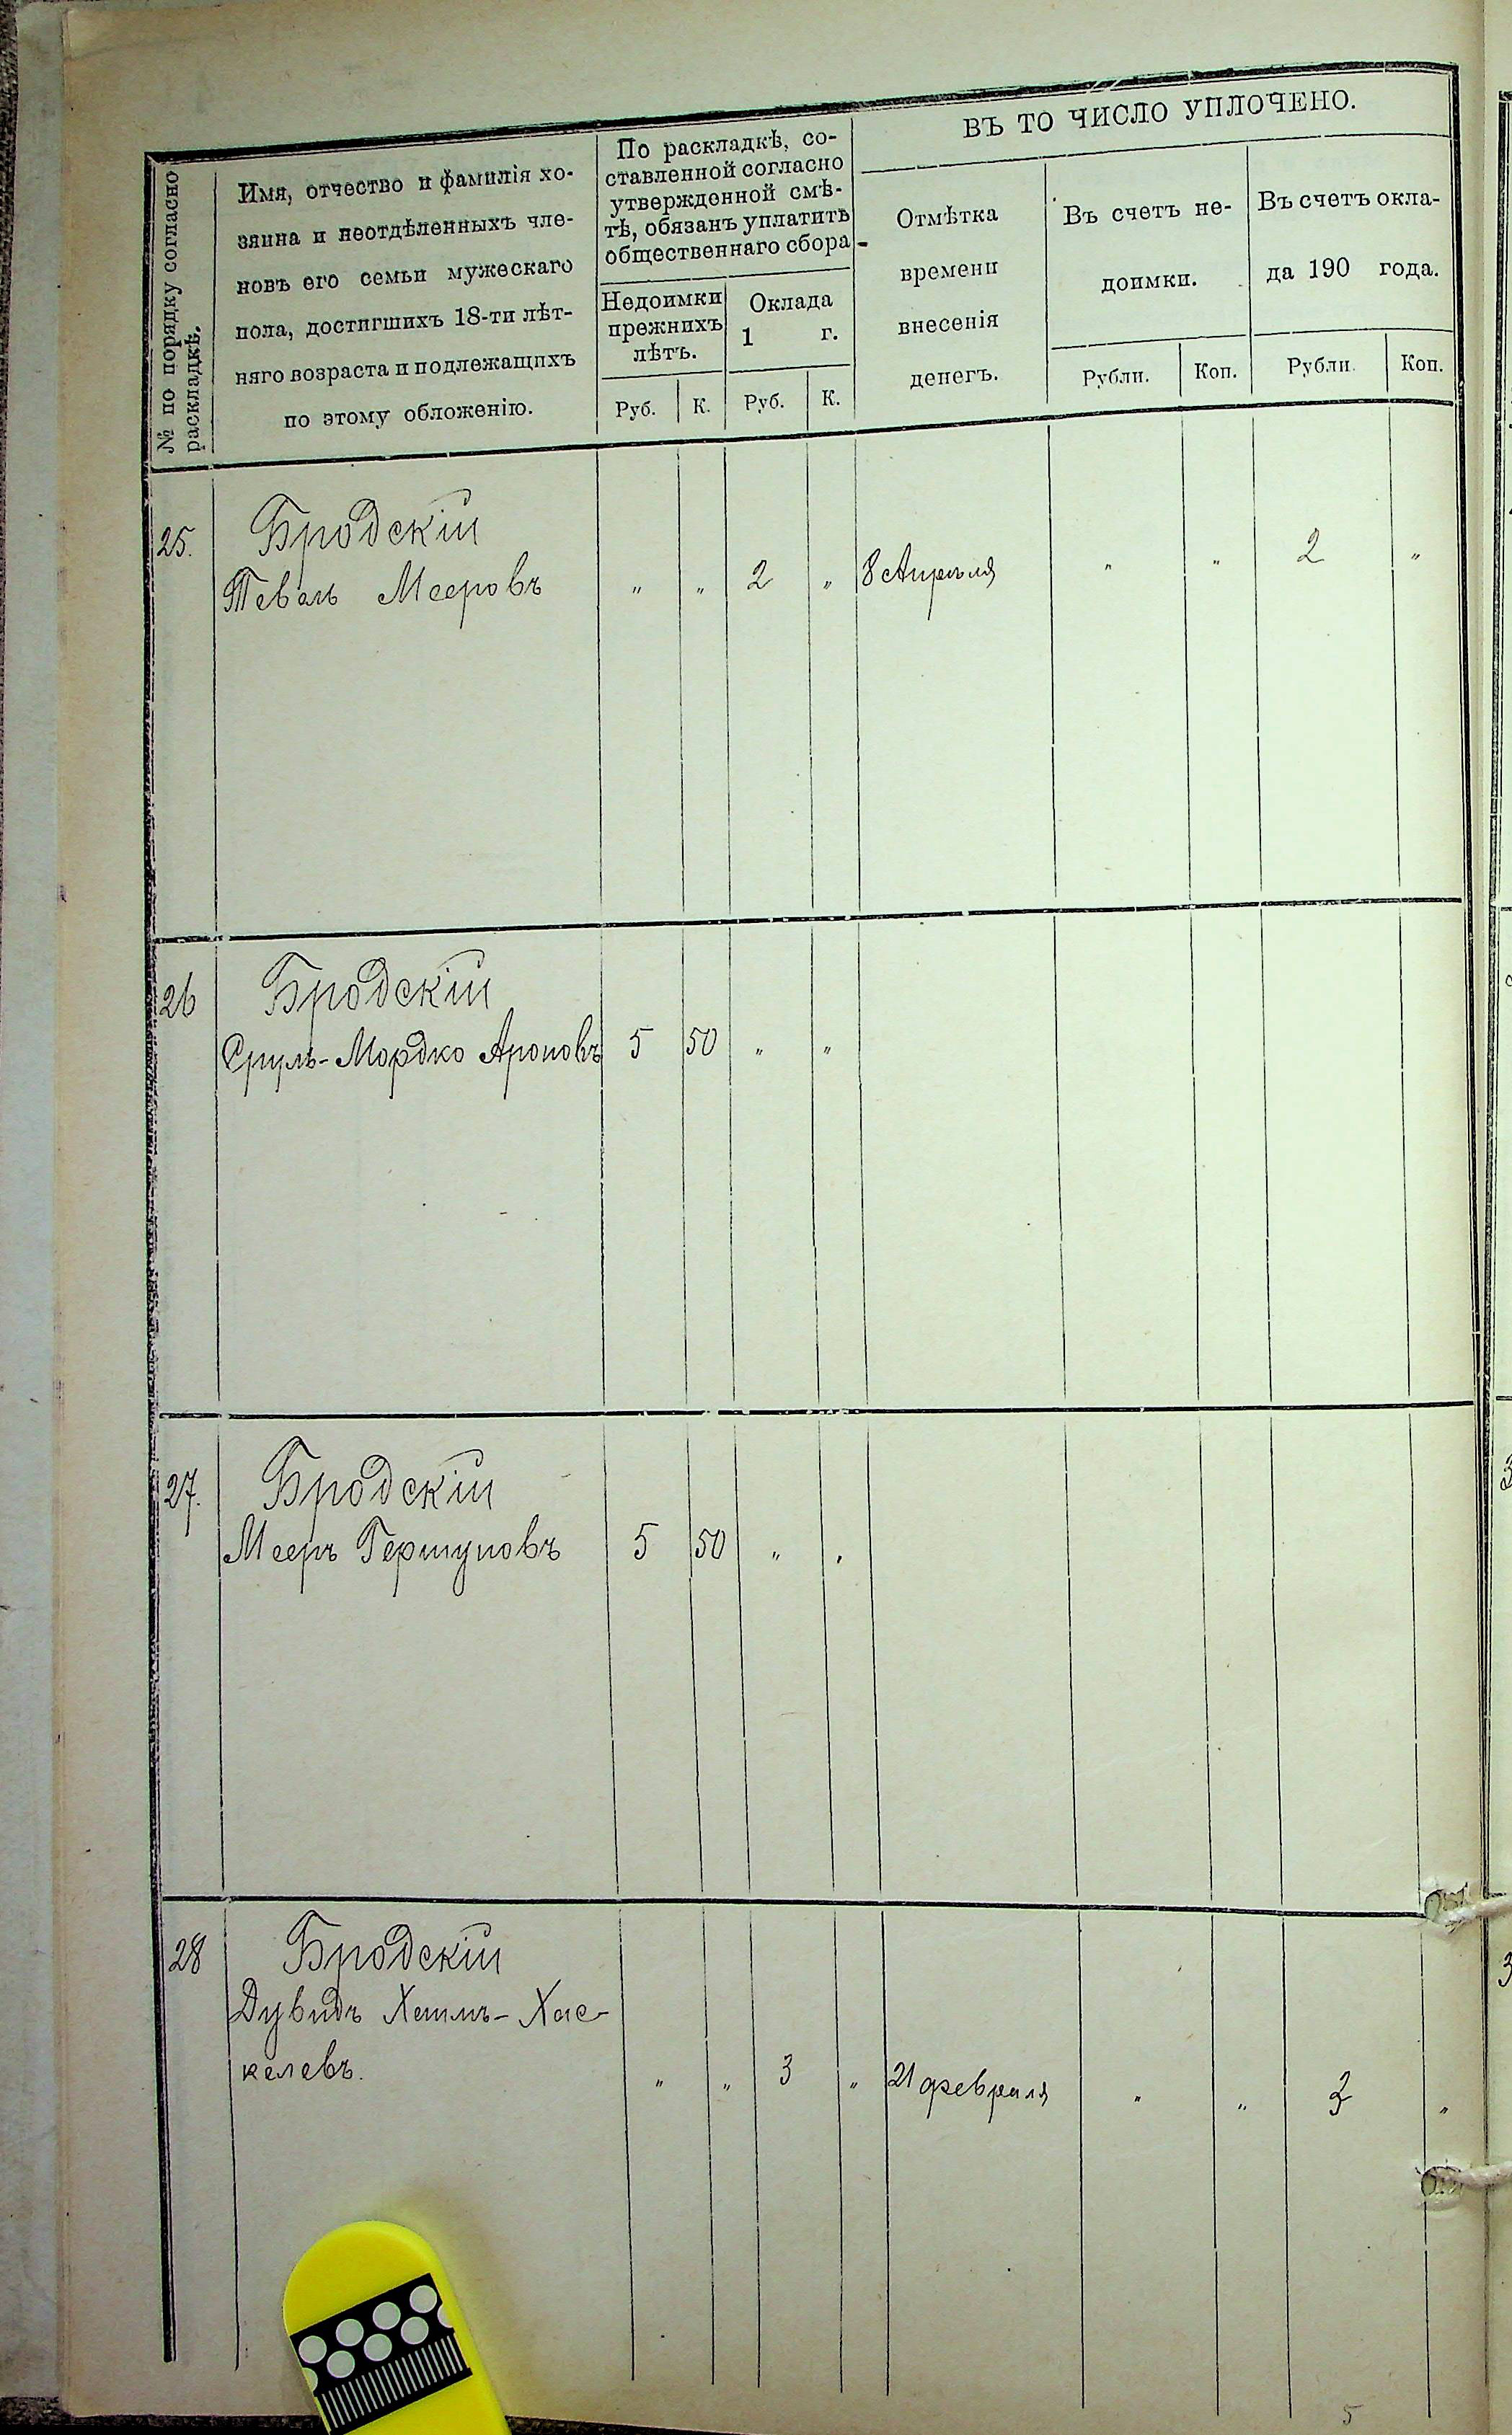 № по порядку согласно
раскладкѣ.
Имя, отчество и фамилія хо-
зяина и неотдѣленныхъ чле-
новъ его семьи мужескаго
пола, достигшихъ 18-ти лѣт-
няго возраста и подлежащихъ
по этому обложенію.
По раскладкѣ, со-
ставленной согласно
утвержденной смѣ-
тѣ, обязанъ уплатить
общественнаго сбора
Недоимки
прежнихъ
лѣтъ.
Руб. К.
Оклада
1 г.
Руб. К.
ВЪ ТО ЧИСЛО УПЛОЧЕНО.
Отмѣтка
времени
внесенія
денегъ.
Въ счетъ не-
доимки.
Рубли. Коп.
Въ счетъ окла-
да 190 года.
Рубли. Коп.
25. Бродскій
Тевель Мееровъ " " 2 " 8 Апрѣля " " 2 "
26 Бродскій
Сруль-Мордко Ароновъ 5 50 " "
27. Бродскій
Мееръ Гершуновъ 5 50 " "
28 Бродскій
Дувидъ Хаимъ-Хас-
келевъ. " " 3 " 21 февраля " " 3 "
5